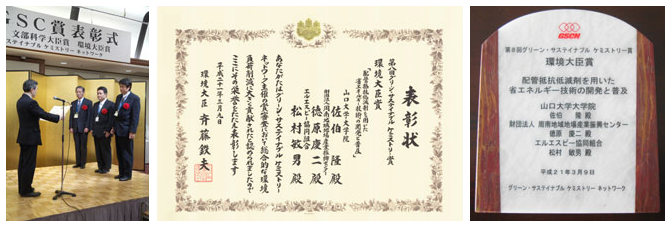 GSC賞表彰式
文部科学大臣賞 環境大臣賞
サステイナブル ケミストリー ネットワーク
表彰状
第八回グリーン・サステイナブル ケミストリー賞
環境大臣賞
「配管抵抗低減剤を用いた
省エネルギー技術の開発と普及」
山口大学大学院
佐伯 隆 殿
財団法人周南地域地場産業振興センター
徳原慶二 殿
エルエスピー協同組合
松村敏男 殿
あなたがたはグリーン・サステイナブル ケミストリー
ネットワーク主催の
負荷削減に大きく貢献されたと認められましたので
ここにその栄誉をたたえ表彰します
平成二十一年三月九日
環境大臣 斉藤鉄夫
GSCN
第8回グリーン・サステイナブル ケミストリー賞
環境大臣賞
配管抵抗低減剤を用いた
省エネルギー技術の開発と普及
山口大学大学院
佐伯 隆 殿
財団法人 周南地域地場産業振興センター
徳原 慶二 殿
エルエスピー協同組合
松村 敏男 殿
平成21年3月9日
グリーン・サステイナブル ケミストリー ネットワーク